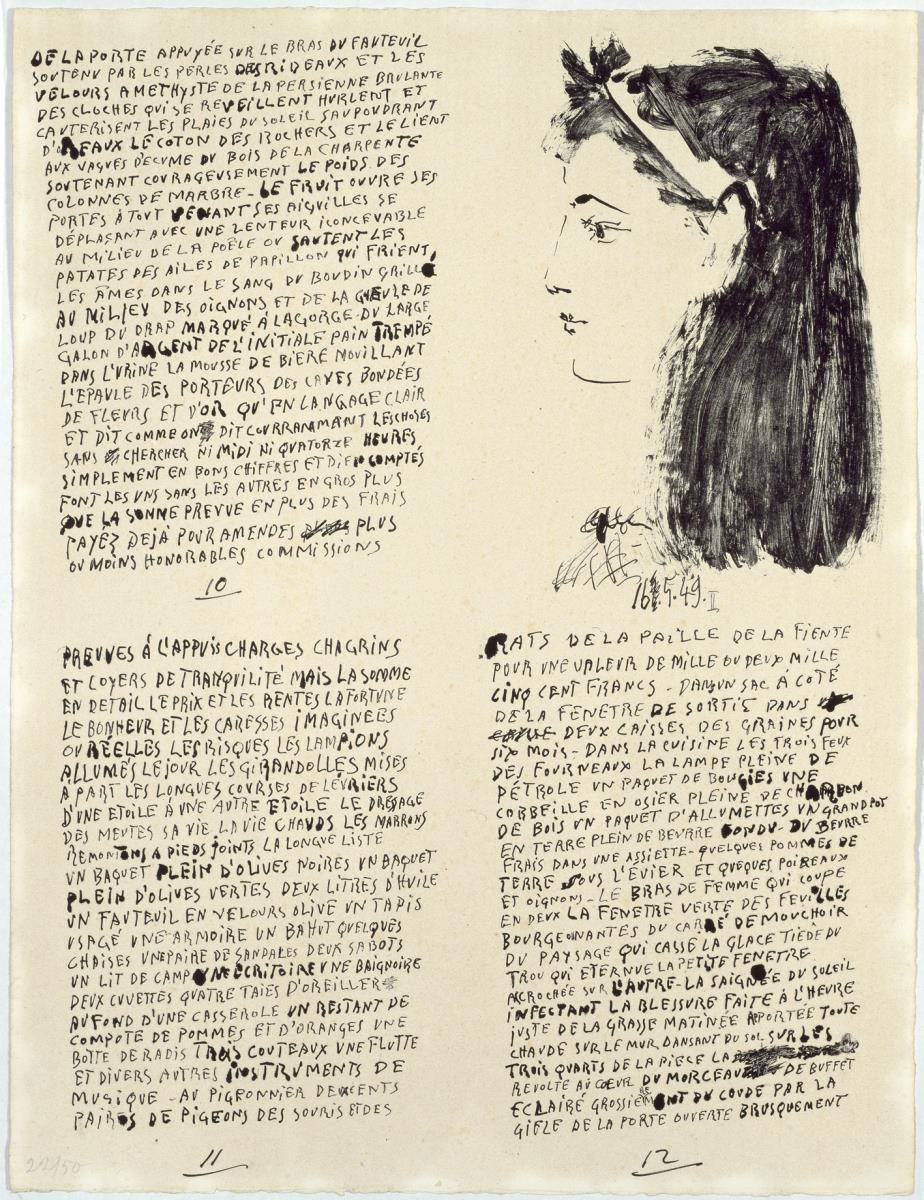 DE LA PORTE APPUYÉE SUR LE BRAS DU FAUTEUIL
SOUTENU PAR LES PERLES DES RIDEAUX ET LES
VELOURS AMETHYSTE DE LA PERSIENNE BRULANTE
DES CLOCHES QUI SE REVEILLENT HURLENT ET
CAUTERISENT LES PLAIES DU SOLEIL SAUPOUDRANT
D'OREAUX LE COTON DES ROCHERS ET LE LIENT
AUX VAGUES D'ECUME DU BOIS DE LA CHARPENTE
SOUTENANT COURAGEUSEMENT LE POIDS DES
COLONNES DE MARBRE - LE FRUIT OUVRE SES
PORTES À TOUT VENANT SES AIGUILLES SE
DÉPLAÇANT AVEC UNE LENTEUR ICONCEVABLE
AU MILIEU DE LA POËLE OU SAUTENT LES
PATATES DES AILES DE PAPILLON QUI FRIENT
LES ÂMES DANS LE SANG DU BOUDIN GRILLÉ
AU MILIEU DES OIGNONS ET DE LA GUEULE DE
LOUP DU DRAP MARQUÉ À LA GORGE DU LARGE
GALON D'ARGENT DE L'INITIALE PAIN TREMPÉ
DANS L'URINE LA MOUSSE DE BIERE MOUILLANT
L'EPAULE DES PORTEURS DES CAVES BONDÉES
DE FLEURS ET D'OR QU'EN LANGAGE CLAIR
ET DIT COMME ON DIT COURRAMMANT LES CHOSES
SANS CHERCHER NI MIDI NI QUATORZE HEURES
SIMPLEMENT EN BONS CHIFFRES ET DIEN COMPTÉS
FONT LES UNS SANS LES AUTRES EN GROS PLUS
QUE LA SONME PREVUE EN PLUS DES FRAIS
PAYEZ DEJÀ POUR AMENDES PLUS
OU MOINS HONORABLES COMMISSIONS
10
16.5.49.II
PREUVES À L'APPUIS CHARGES CHAGRINS
ET LOYERS DE TRANQUILITÉ MAIS LA SOMME
EN DETAIL LE PRIX ET LES RENTES LA FORTUNE
LE BONHEUR ET LES CARESSES IMAGINÉES
OU RÉELLES LES RISQUES LES LAMPIONS
ALLUMÉS LE JOUR LES GIRANDOLLES MISES
A PART LES LONGUES COURSES DE LÉVRIERS
D'UNE ETOILE À UNE AUTRE ETOILE LE DRESAGE
DES MEUTES SA VIE LA VIE CHAUDS LES MARRONS
REMONTONS A PIEDS JOINTS LA LONGUE LISTE
UN BAQUET PLEIN D'OLIVES NOIRES UN BAQUET
PLEIN D'OLIVES VERTES DEUX LITRES D'HUILE
UN FAUTEUIL EN VELOURS OLIVE UN TAPIS
USAGÉ UNE ARMOIRE UN BAHUT QUELQUES
CHAISES UNE PAIRE DE SANDALES DEUX SABOTS
UN LIT DE CAMP UNE ECRITOIRE UNE BAIGNOIRE
DEUX CUVETTES QUATRE TAIES D'OREILLER
AU FOND D'UNE CASSEROLE UN RESTANT DE
COMPOTE DE POMMES ET D'ORANGES UNE
BOTTE DE RADIS TROIS COUTEAUX UNE FLUTE
ET DIVERS AUTRES INSTRUMENTS DE
MUSIQUE - AU PIGEONNIER DEUX CENTS
PAIRES DE PIGEONS DES SOURIS ET DES
11
22/50
RATS DE LA PAILLE DE LA FIENTE
POUR UNE VALEUR DE MILLE OU DEUX MILLE
CINQ CENT FRANCS - DANS UN SAC À COTÉ
DE LA FENETRE DE SORTIE DANS
DEUX CAISSES DES GRAINES POUR
SIX MOIS - DANS LA CUISINE LES TROIS FEUX
DES FOURNEAUX LA LAMPE PLEINE DE
PÉTROLE UN PAQUET DE BOUGIES UNE
CORBEILLE EN OSIER PLEINE DE CHARBON
DE BOIS UN PAQUET D'ALLUMETTES UN GRAND POT
EN TERRE PLEIN DE BEURRE FONDU - DU BEURRE
FRAIS DANS UNE ASSIETTE - QUELQUES POMMES DE
TERRE SOUS L'ÉVIER ET QUEQUES POIREAUX
ET OIGNONS - LE BRAS DE FEMME QUI COUPE
EN DEUX LA FENETRE VERTE DES FEUILLES
BOURGEONANTES DU CARRÉ DE MOUCHOIR
DU PAYSAGE QUI CASSE LA GLACE TIÈDE DU
TROU QUI ETERNUE LA PETITE FENETRE
ACCROCHÉE SUR L'AUTRE - LA SAIGNÉE DU SOLEIL
INFECTANT LA BLESSURE FAITE À L'HEURE
JUSTE DE LA GRASSE MATINÉE APPORTÉE TOUTE
CHAUDE SUR LE MUR DANSANT DU SOL SUR LES
TROIS QUARTS DE LA PIECE LA
REVOLTE AU COEUR DU MORCEAU DE BUFFET
ECLAIRÉ GROSSIEREMENT DU COUDE PAR LA
GIFLE DE LA PORTE OUVERTE BRUSQUEMENT
12